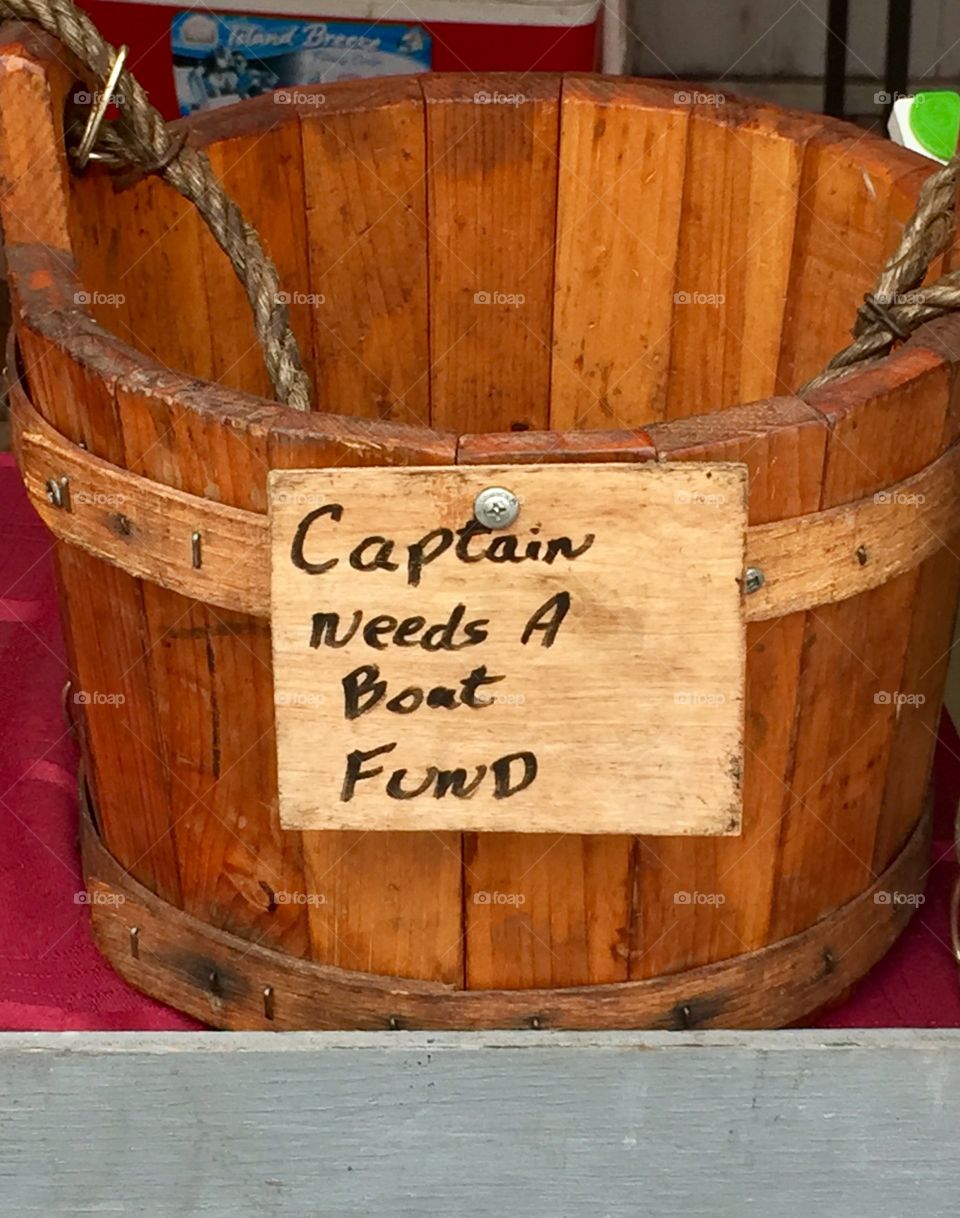 Island Breeze
Captain
needs A
Boat
Fund
foap